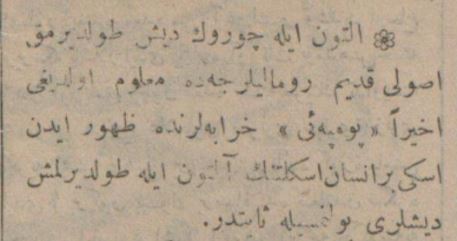 ❀ التون ايله چوروك ديش طولديرمق
اصولی قديم روماليلرجه‌ده معلوم اولديغی
اخيراً « پومپه‌ئی » خرابه‌لرنده ظهور ايدن
اسكی برانسان اسكلتنك آلتون ايله طولديرلمش
ديشلری بولنمسيله ثابتدر.